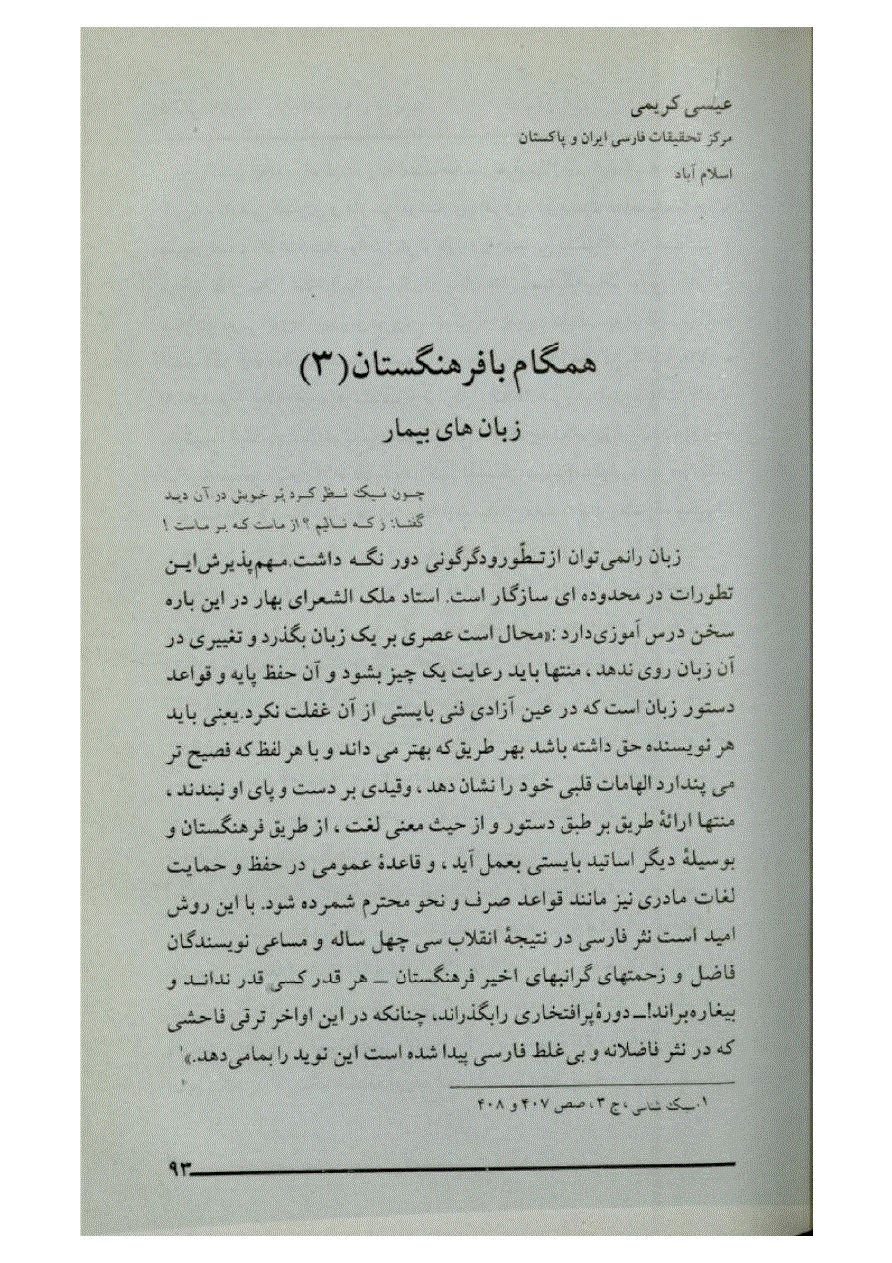 عیسی کریمی
مرکز تحقیقات فارسی ایران و پاکستان
اسلام آباد
همگام با فرهنگستان (۳)
زبان های بیمار
چون نیک نظر کرد پر خویش در آن دید
گفتا: ز که نالیم ؟ از ماست که بر ماست !
زبان را نمی توان از تطّور و دگرگونی دور نگه داشت. مهم پذیرش این
تطورات در محدوده ای سازگار است. استاد ملک الشعرای بهار در این باره
سخن درس آموزی دارد : «محال است عصری بر یک زبان بگذرد و تغییری در
آن زبان روی ندهد ، منتها باید رعایت یک چیز بشود و آن حفظ پایه و قواعد
دستور زبان است که در عین آزادی فنی بایستی از آن غفلت نکرد. یعنی باید
هر نویسنده حق داشته باشد بهر طریق که بهتر می داند و با هر لفظ که فصیح تر
می پندارد الهامات قلبی خود را نشان دهد ، وقیدی بر دست و پای او نبندند ،
منتها ارائهٔ طریق بر طبق دستور و از حیث معنی لغت ، از طریق فرهنگستان و
بوسیلهٔ دیگر اساتید بایستی بعمل آید ، و قاعدهٔ عمومی در حفظ و حمایت
لغات مادری نیز مانند قواعد صرف و نحو محترم شمرده شود. با این روش
امید است نثر فارسی در نتیجهٔ انقلاب سی چهل ساله و مساعی نویسندگان
فاضل و زحمتهای گرانبهای اخیر فرهنگستان ــ هر قدر کسی قدر نداند و
بیغاره براند! ــ دورهٔ پرافتخاری را بگذراند، چنانکه در این اواخر ترقی فاحشی
که در نثر فاضلانه و بی غلط فارسی پیدا شده است این نوید را بما می دهد.»۱
۱. سبک شناسی ، ج ۳ ، صص ۴۰۷ و ۴۰۸
۹۳